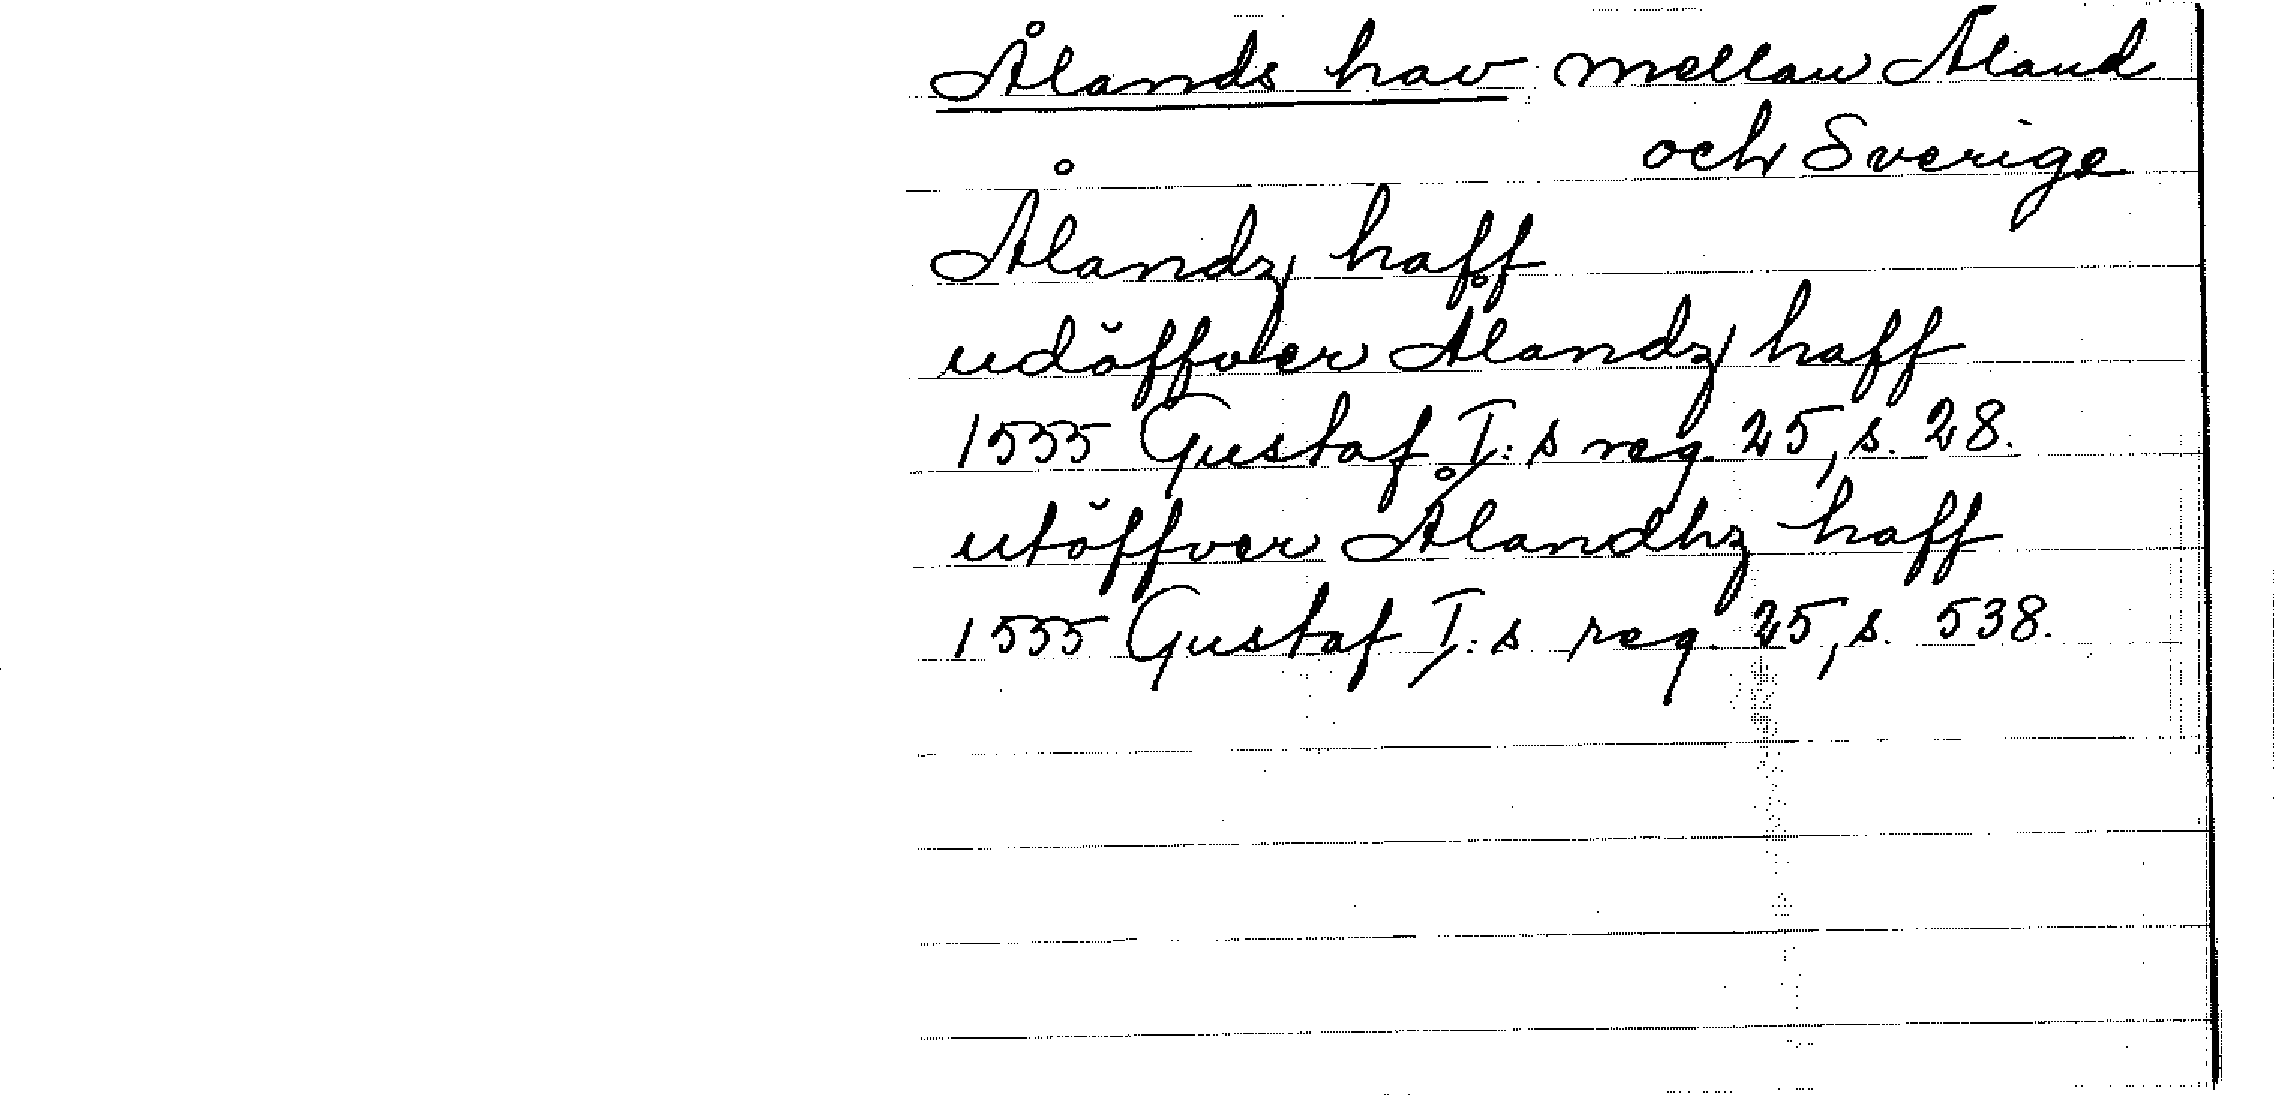 Ålands hav mellan Åland
och Sverige
Ålandz haff
udöffver Ålandz haff
1555 Gustaf I:s reg. 25, s. 28.
utöffver Ålandhz haff
1555 Gustaf I:s reg. 25, s. 538.